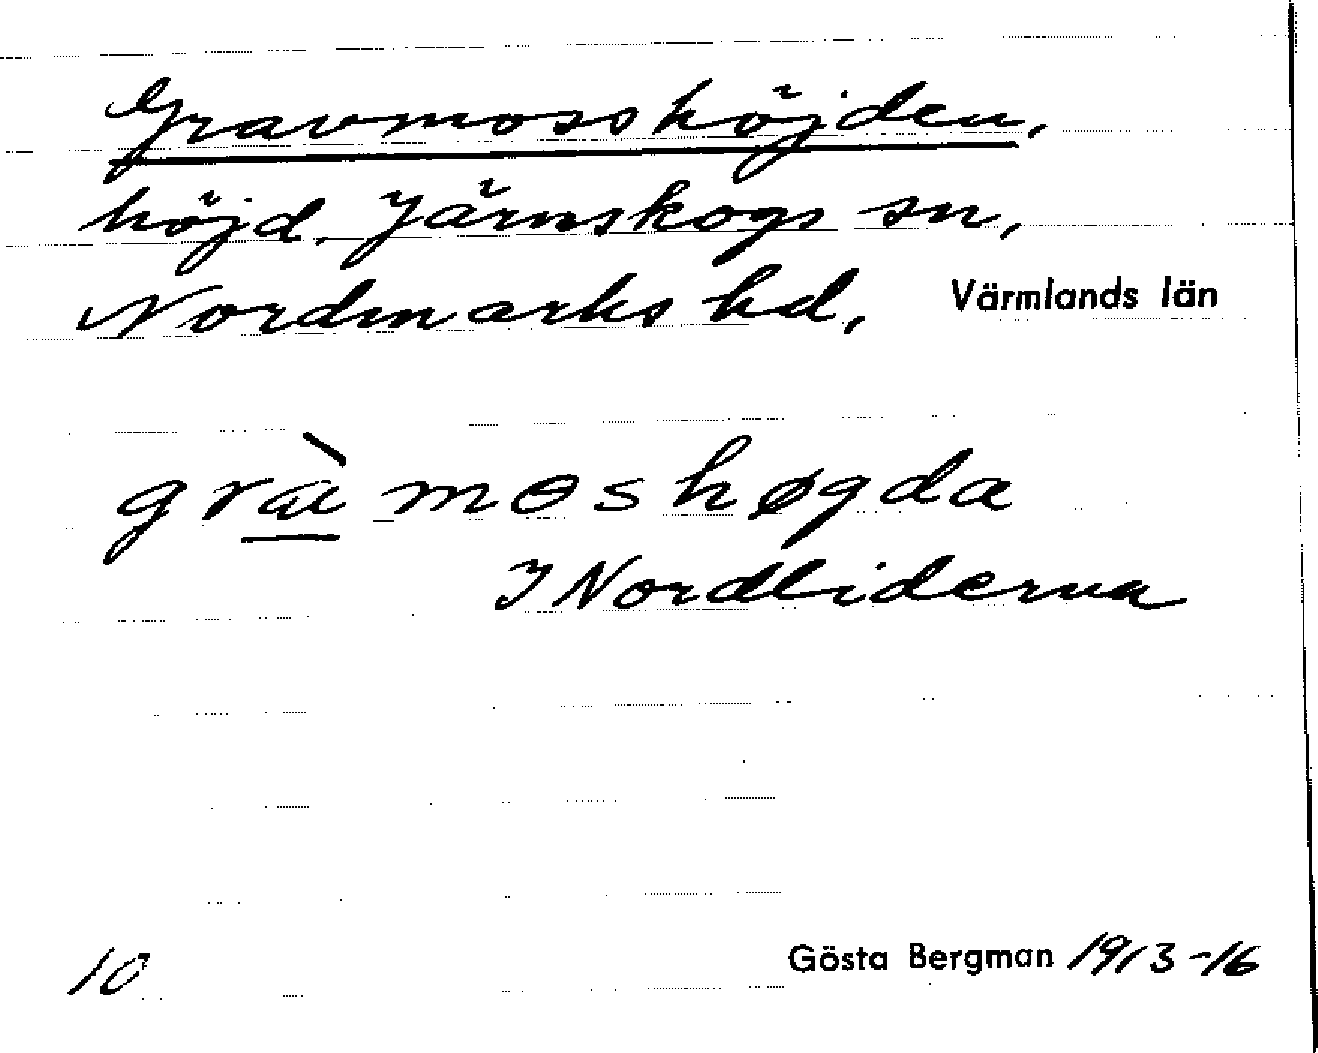 Gravmosshöjden,
höjd. Järnskogs sn,
Nordmarks hd, Värmlands län
gràmɵshøgda
I Nordliderna
10 Gösta Bergman 1913-16